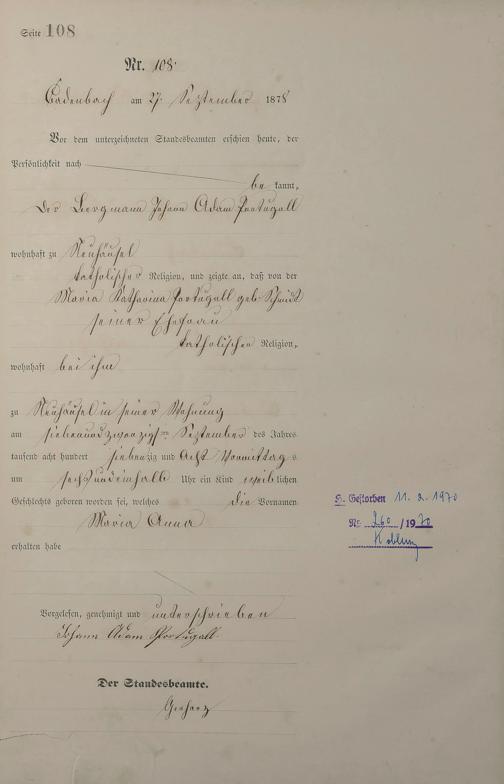 Seite 108
Nr. 108.
Cadenbach am 27. September 1878
Vor dem unterzeichneten Standesbeamten erschien heute, der
Persönlichkeit nach
be kannt,
der Bergmann Johann Adam Portugall
wohnhaft zu Neuhäusel
katholischer Religion, und zeigte an, daß von der
Maria Katharina Portugall geb. Schmidt
seiner Ehefrau
katholischer Religion,
wohnhaft bei ihm
zu Neuhäusel in seiner Wohnung
am siebenundzwanzigsten September des Jahres
tausend acht hundert siebenzig und acht Vormittags
um sechs und einhalb Uhr ein Kind weiblichen
Geschlechts geboren worden sei, welches die Vornamen
Maria Anna
erhalten habe
Vorgelesen, genehmigt und unterschrieben
Johann Adam Portugall
Der Standesbeamte.
Gerharz
Gestorben 11.2.1970
Nr. 260/1970
Koblenz